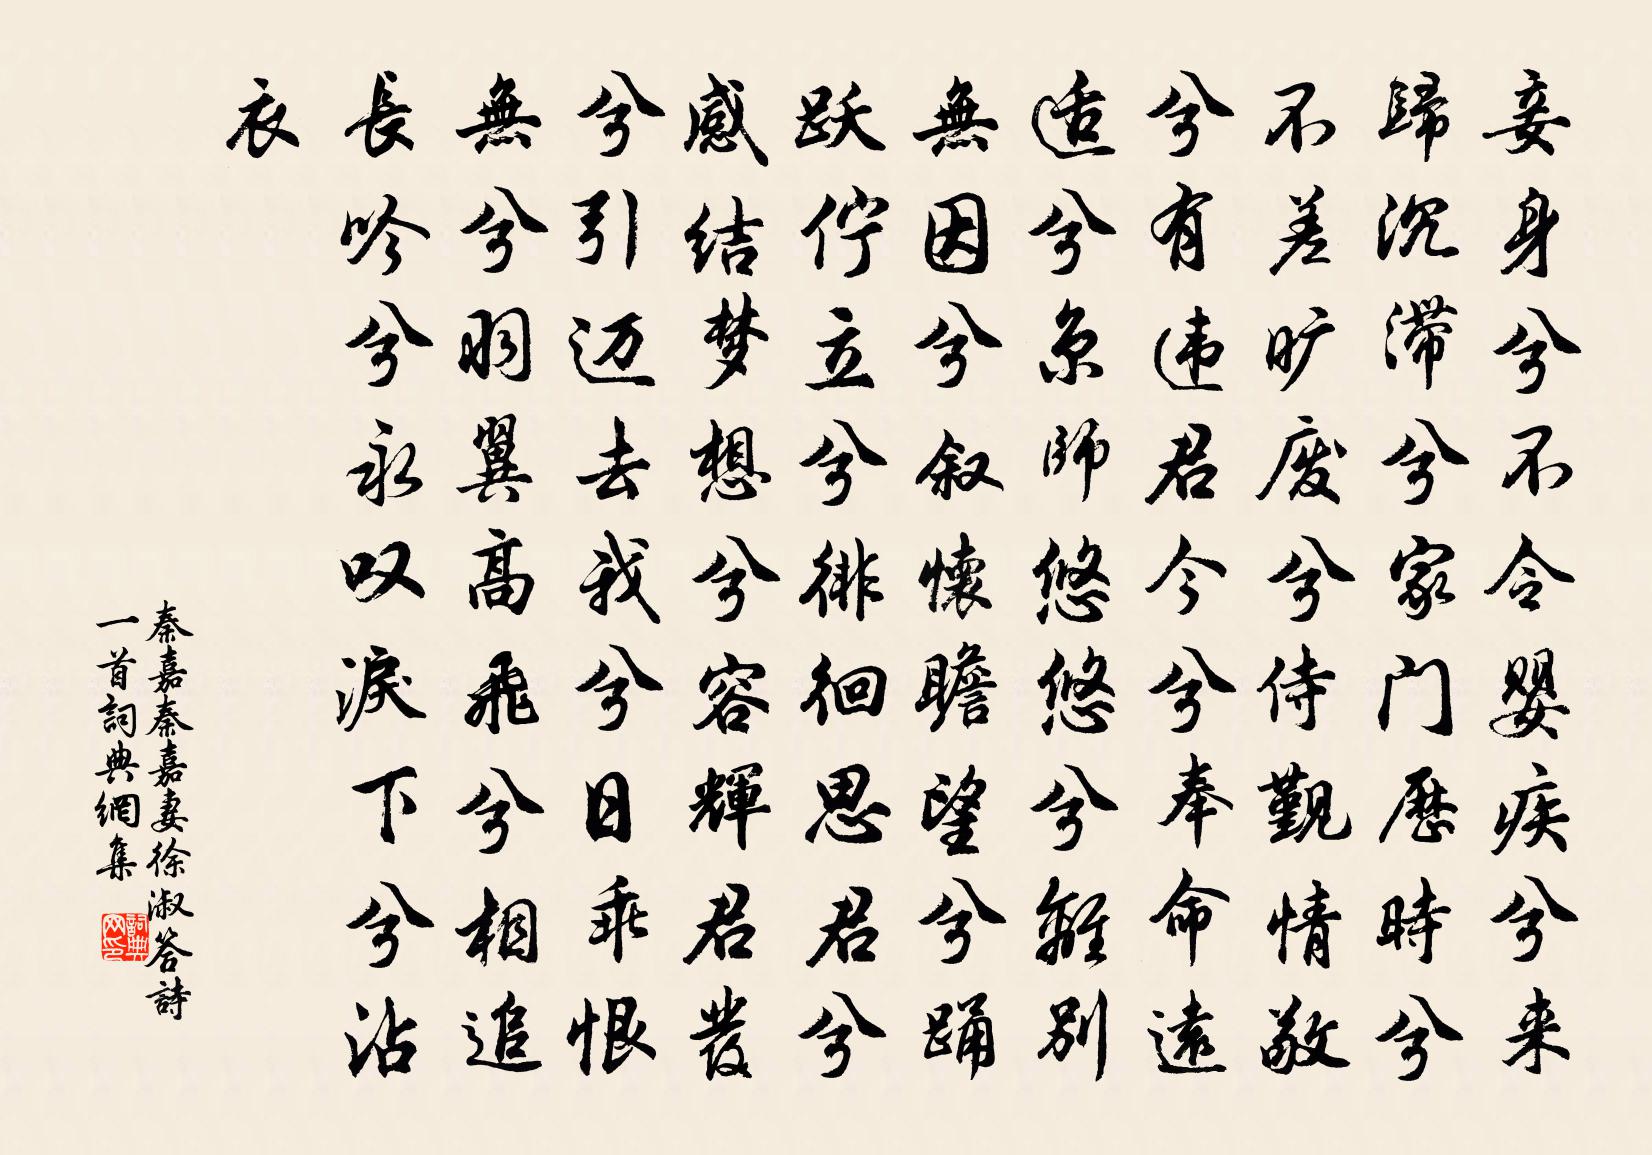 妾身兮不令嬰疾兮来
歸沉滯兮家门歷時兮
不差旷廢兮侍觐情敬
兮有违君今兮奉命遠
适兮京師悠悠兮離别
無因兮叙懷瞻望兮踊
跃佇立兮徘徊思君兮
感结梦想兮容輝君發
兮引迈去我兮日乖恨
無兮羽翼高飛兮相追
長吟兮永叹淚下兮沾
衣
秦嘉秦嘉妻徐淑答詩
一首詞典網集
詞典
网印